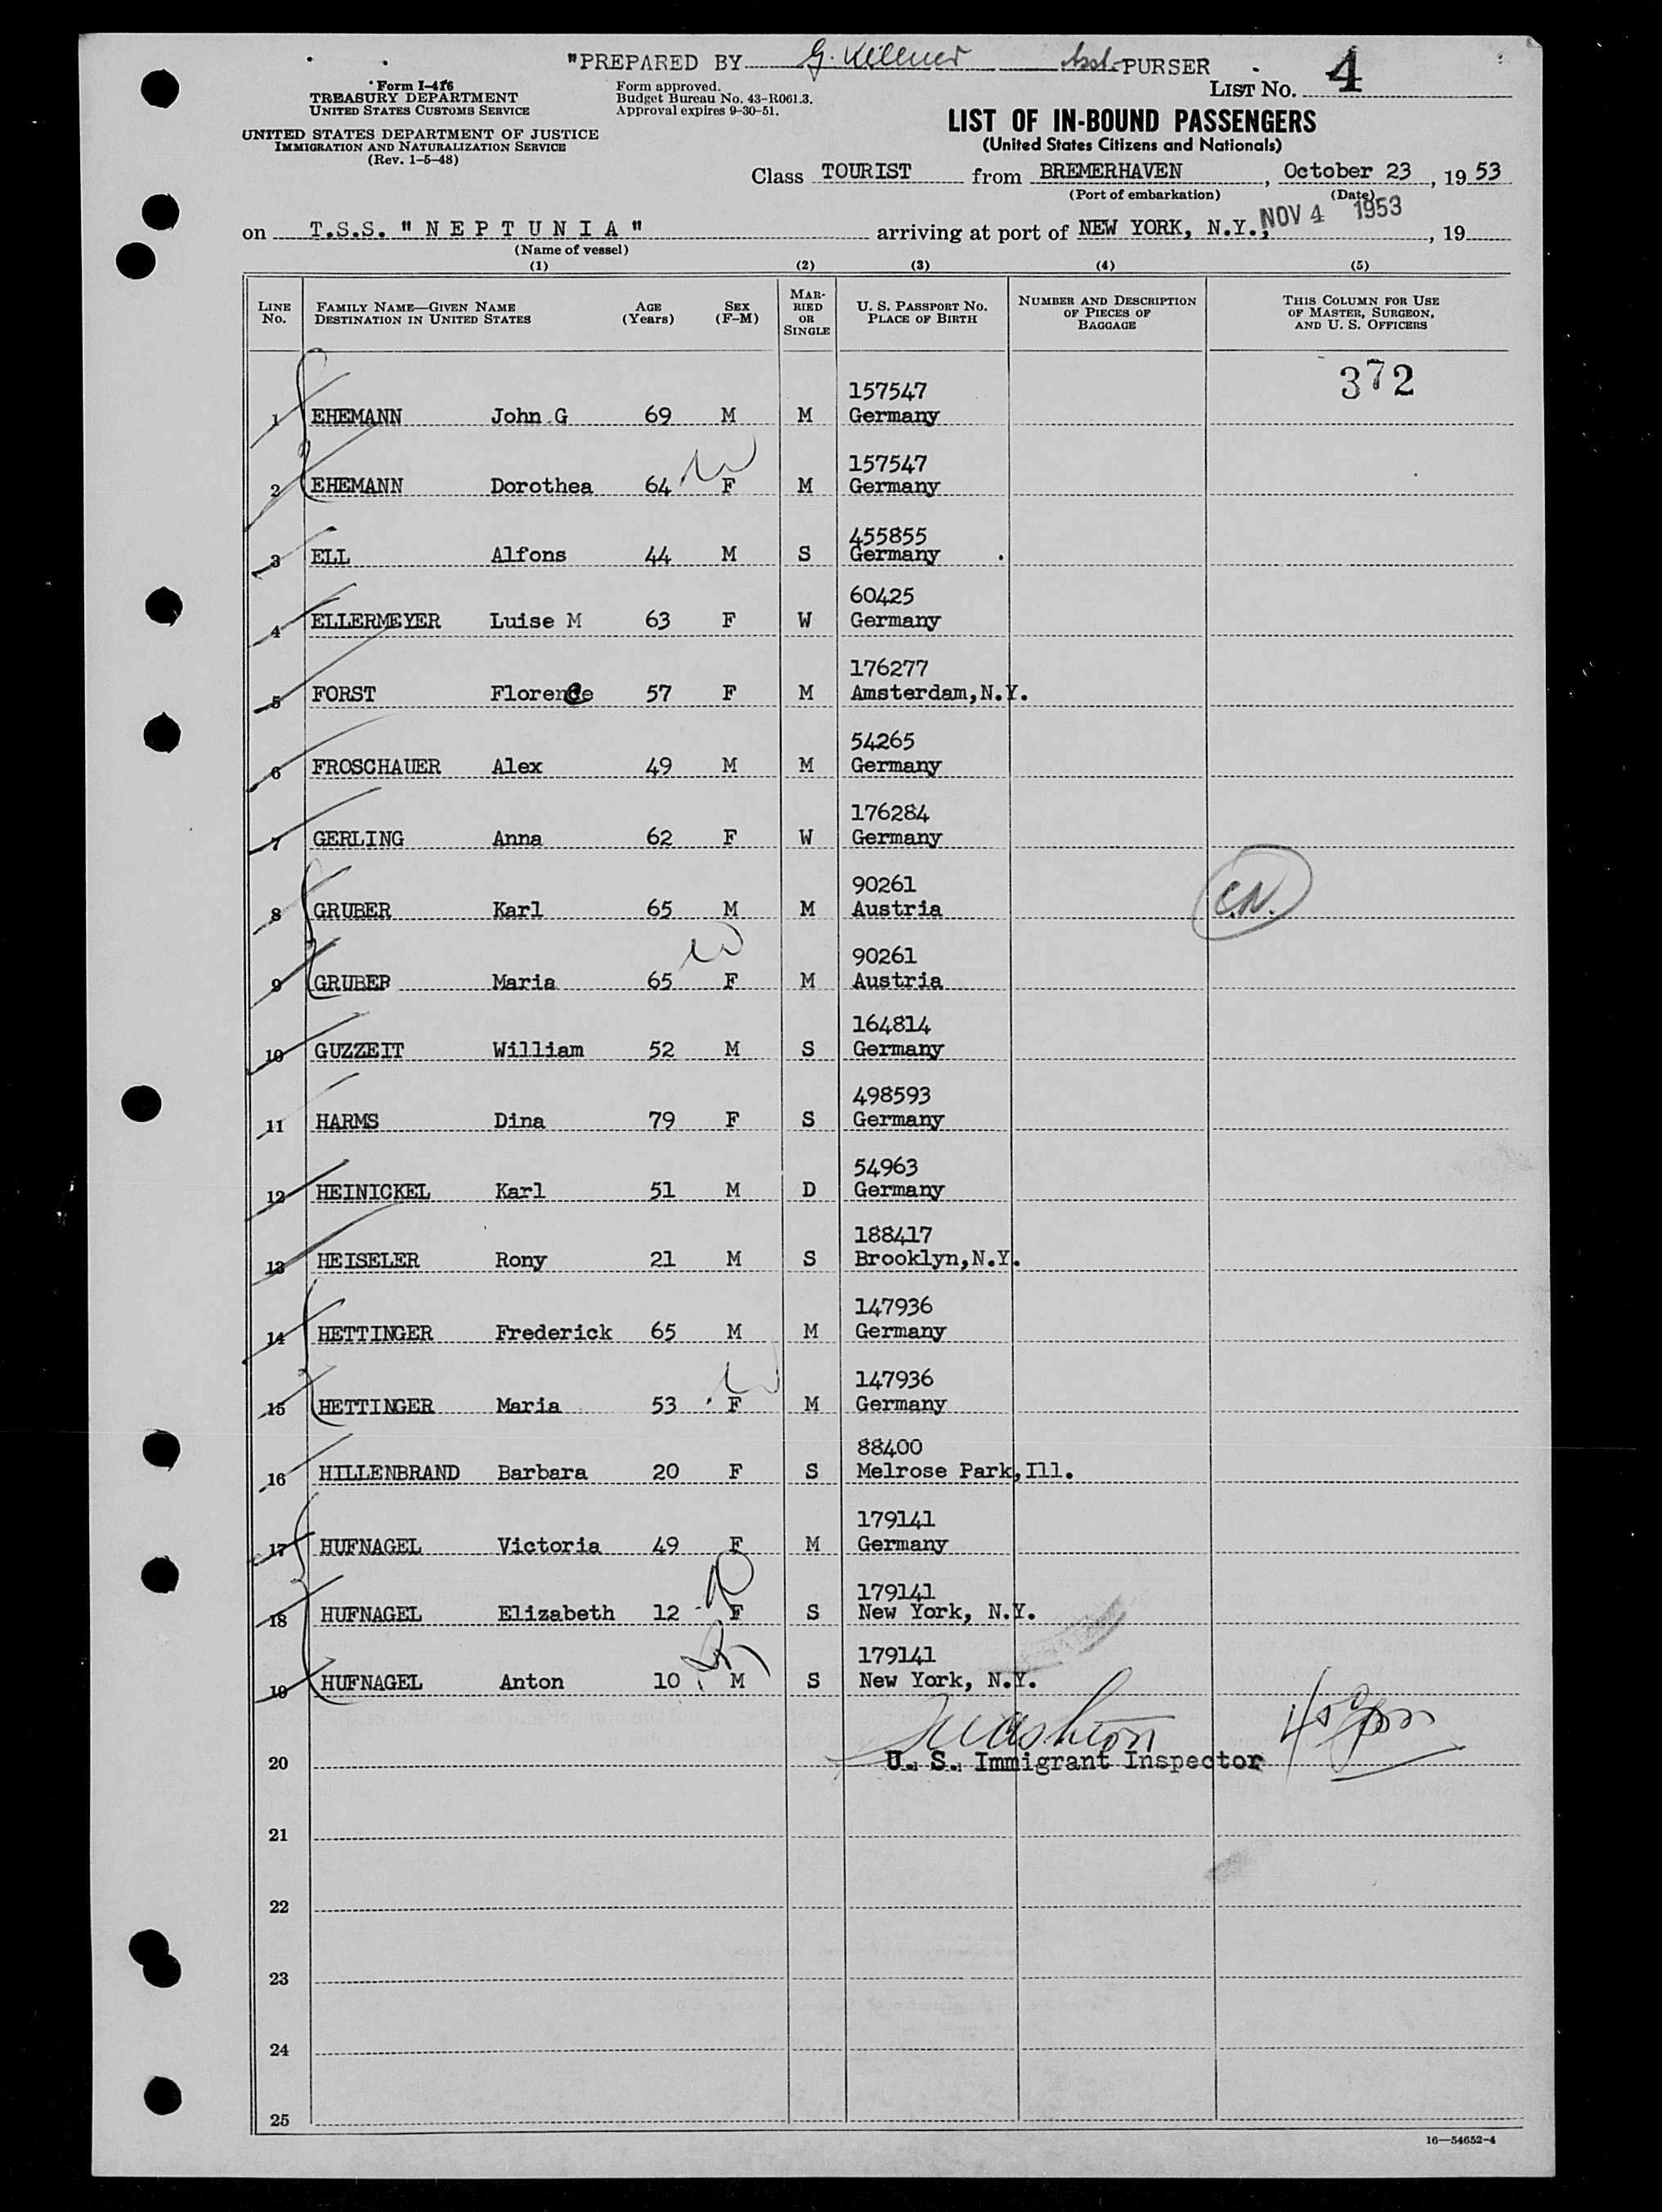 "PREPARED BY G. Killner Asst. PURSER
Form I-416
TREASURY DEPARTMENT
UNITED STATES CUSTOMS SERVICE
Form approved.
Budget Bureau No. 43-R061.3.
Approval expires 9-30-51.
LIST No. 4
UNITED STATES DEPARTMENT OF JUSTICE
IMMIGRATION AND NATURALIZATION SERVICE
(Rev. 1-5-48)
LIST OF IN-BOUND PASSENGERS
(United States Citizens and Nationals)
Class TOURIST from BREMERHAVEN, October 23, 1953
(Port of embarkation) (Date)
on T.S.S. "NEPTUNIA" arriving at port of NEW YORK, N.Y., NOV 4 1953, 19
(Name of vessel)
(1) (2) (3) (4) (5)
LINE No. FAMILY NAME—GIVEN NAME DESTINATION IN UNITED STATES AGE (Years) SEX (F-M) MARRIED OR SINGLE U. S. PASSPORT No. PLACE OF BIRTH NUMBER AND DESCRIPTION OF PIECES OF BAGGAGE THIS COLUMN FOR USE OF MASTER, SURGEON, AND U. S. OFFICERS
372
157547
1 EHEMANN John G 69 M M Germany
W 157547
2 EHEMANN Dorothea 64 F M Germany
455855
3 ELL Alfons 44 M S Germany
60425
4 ELLERMEYER Luise M 63 F W Germany
176277
5 FORST Florence 57 F M Amsterdam, N.Y.
54265
6 FROSCHAUER Alex 49 M M Germany
176284
7 GERLING Anna 62 F W Germany
90261
8 GRUBER Karl 65 M M Austria C.N.
W 90261
9 GRUBER Maria 65 F M Austria
164814
10 GUZZEIT William 52 M S Germany
498593
11 HARMS Dina 79 F S Germany
54963
12 HEINICKEL Karl 51 M D Germany
188417
13 HEISELER Rony 21 M S Brooklyn, N.Y.
147936
14 HETTINGER Frederick 65 M M Germany
W 147936
15 HETTINGER Maria 53 F M Germany
88400
16 HILLENBRAND Barbara 20 F S Melrose Park, Ill.
179141
17 HUFNAGEL Victoria 49 F M Germany
179141
18 HUFNAGEL Elizabeth 12 F S New York, N.Y.
179141
19 HUFNAGEL Anton 10 M S New York, N.Y.
20 U. S. Immigrant Inspector
21
22
23
24
25
16—54652-4